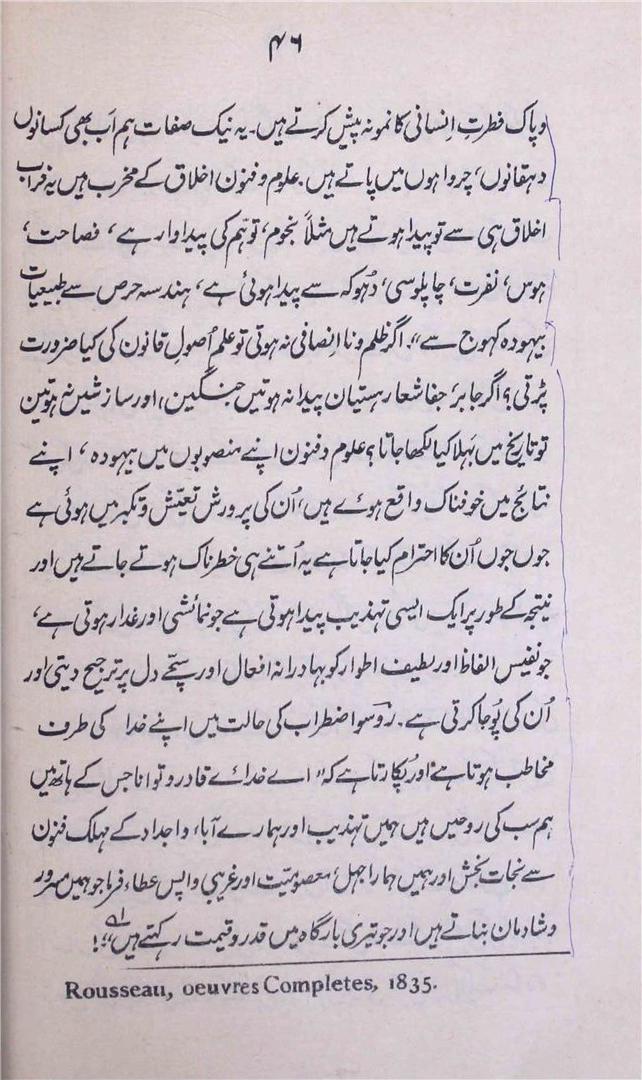 ۴۶
و پاک فطرتِ اِنسانی کا نمونہ پیش کرتے ہیں۔ یہ نیک صفات ہم اَب بھی کسانوں
دہقانوں، چرواہوں میں پاتے ہیں۔ علوم و فنون اخلاق کے مخرب ہیں یہ خراب
اخلاق ہی سے تو پیدا ہوتے ہیں مثلاً نجوم، توہّم کی پیداوار ہے، فصاحت،
ہوس، نفرت، چاپلوسی، دہوکہ سے پیدا ہوئی ہے، ہندسہ حرص سے طبیعیات
بیہودہ کھوج سے"۔ اگر ظلم و نا اِنصافی نہ ہوتی تو علمِ اُصولِ قانون کی کیا ضرورت
پڑتی؟ اگر جابر، جفاشعار ہستیان پیدا نہ ہوتیں جنگیں، اور سازشیں نہ ہوتین
تو تاریخ میں بہلا کیا لکھا جاتا؟ علوم و فنون اپنے منصوبوں میں بیہودہ، اپنے
نتائج میں خوفناک واقع ہوۓ ہیں، اُن کی پرورش تعیّش و تکبر میں ہوئی ہے
جوں جوں اُن کا احترام کیا جاتا ہے یہ اُتنے ہی خطرناک ہوتے جاتے ہیں اور
نیتجہ کے طور پر ایک ایسی تہذیب پیدا ہوتی ہے جو نمائشی اور غدار ہوتی ہے،
جو نفیس الفاظ اور لطیف اطوار کو بہادرانہ افعال اور سچّے دل پر ترجیح دیتی اور
اُن کی پُوجا کرتی ہے۔ روسو اضطراب کی حالت میں اپنے خدا کی طرف
مخاطب ہوتا ہے اور پُکارتا ہے کہ "اے خداۓ قادر و توانا جس کے ہاتھ میں
ہم سب کی روحیں ہیں ہمیں تہذیب اور ہمارے آباء و اجداد کے مہلک فنون
سے نجات بخش اور ہمیں ہمارا جہل، معصومیّت اور غریبی واپس عطاء فرما جو ہمیں مسرور
و شادمان بناتے ہیں اور جو تیری بارگاہ میں قدر و قیمت رکہتے ہیں"!
Rousseau, oeuvres Completes, 1835.